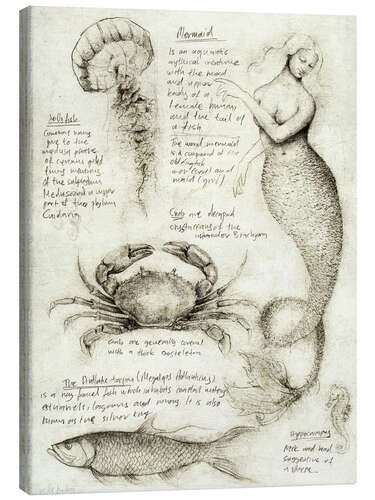 Mermaid
Is an aquatic
mythical creature
with the head
and upper
body of a
female human
and the tail of
a fish
The word mermaid
is a compound of the
old english
mere (sea) and
maid (girl)
Jelly fish
Common name
give to the
medusa phase
of certain
members
of the subphylum
Medusozoa a major
part of the phylum
Cnidaria
Crabs are decapod
crustaceans of the
infraorder Brachyura
Crabs are generally covered
with a thick exoskeleton
The Atlantic tarpon (Megalops Atlanticus)
is a ray finned fish which inhabits coastal waters
estuaries, lagoons and rivers. It is also
known as the silver king
Hippocampus
Neck and head
suggestive of
a horse